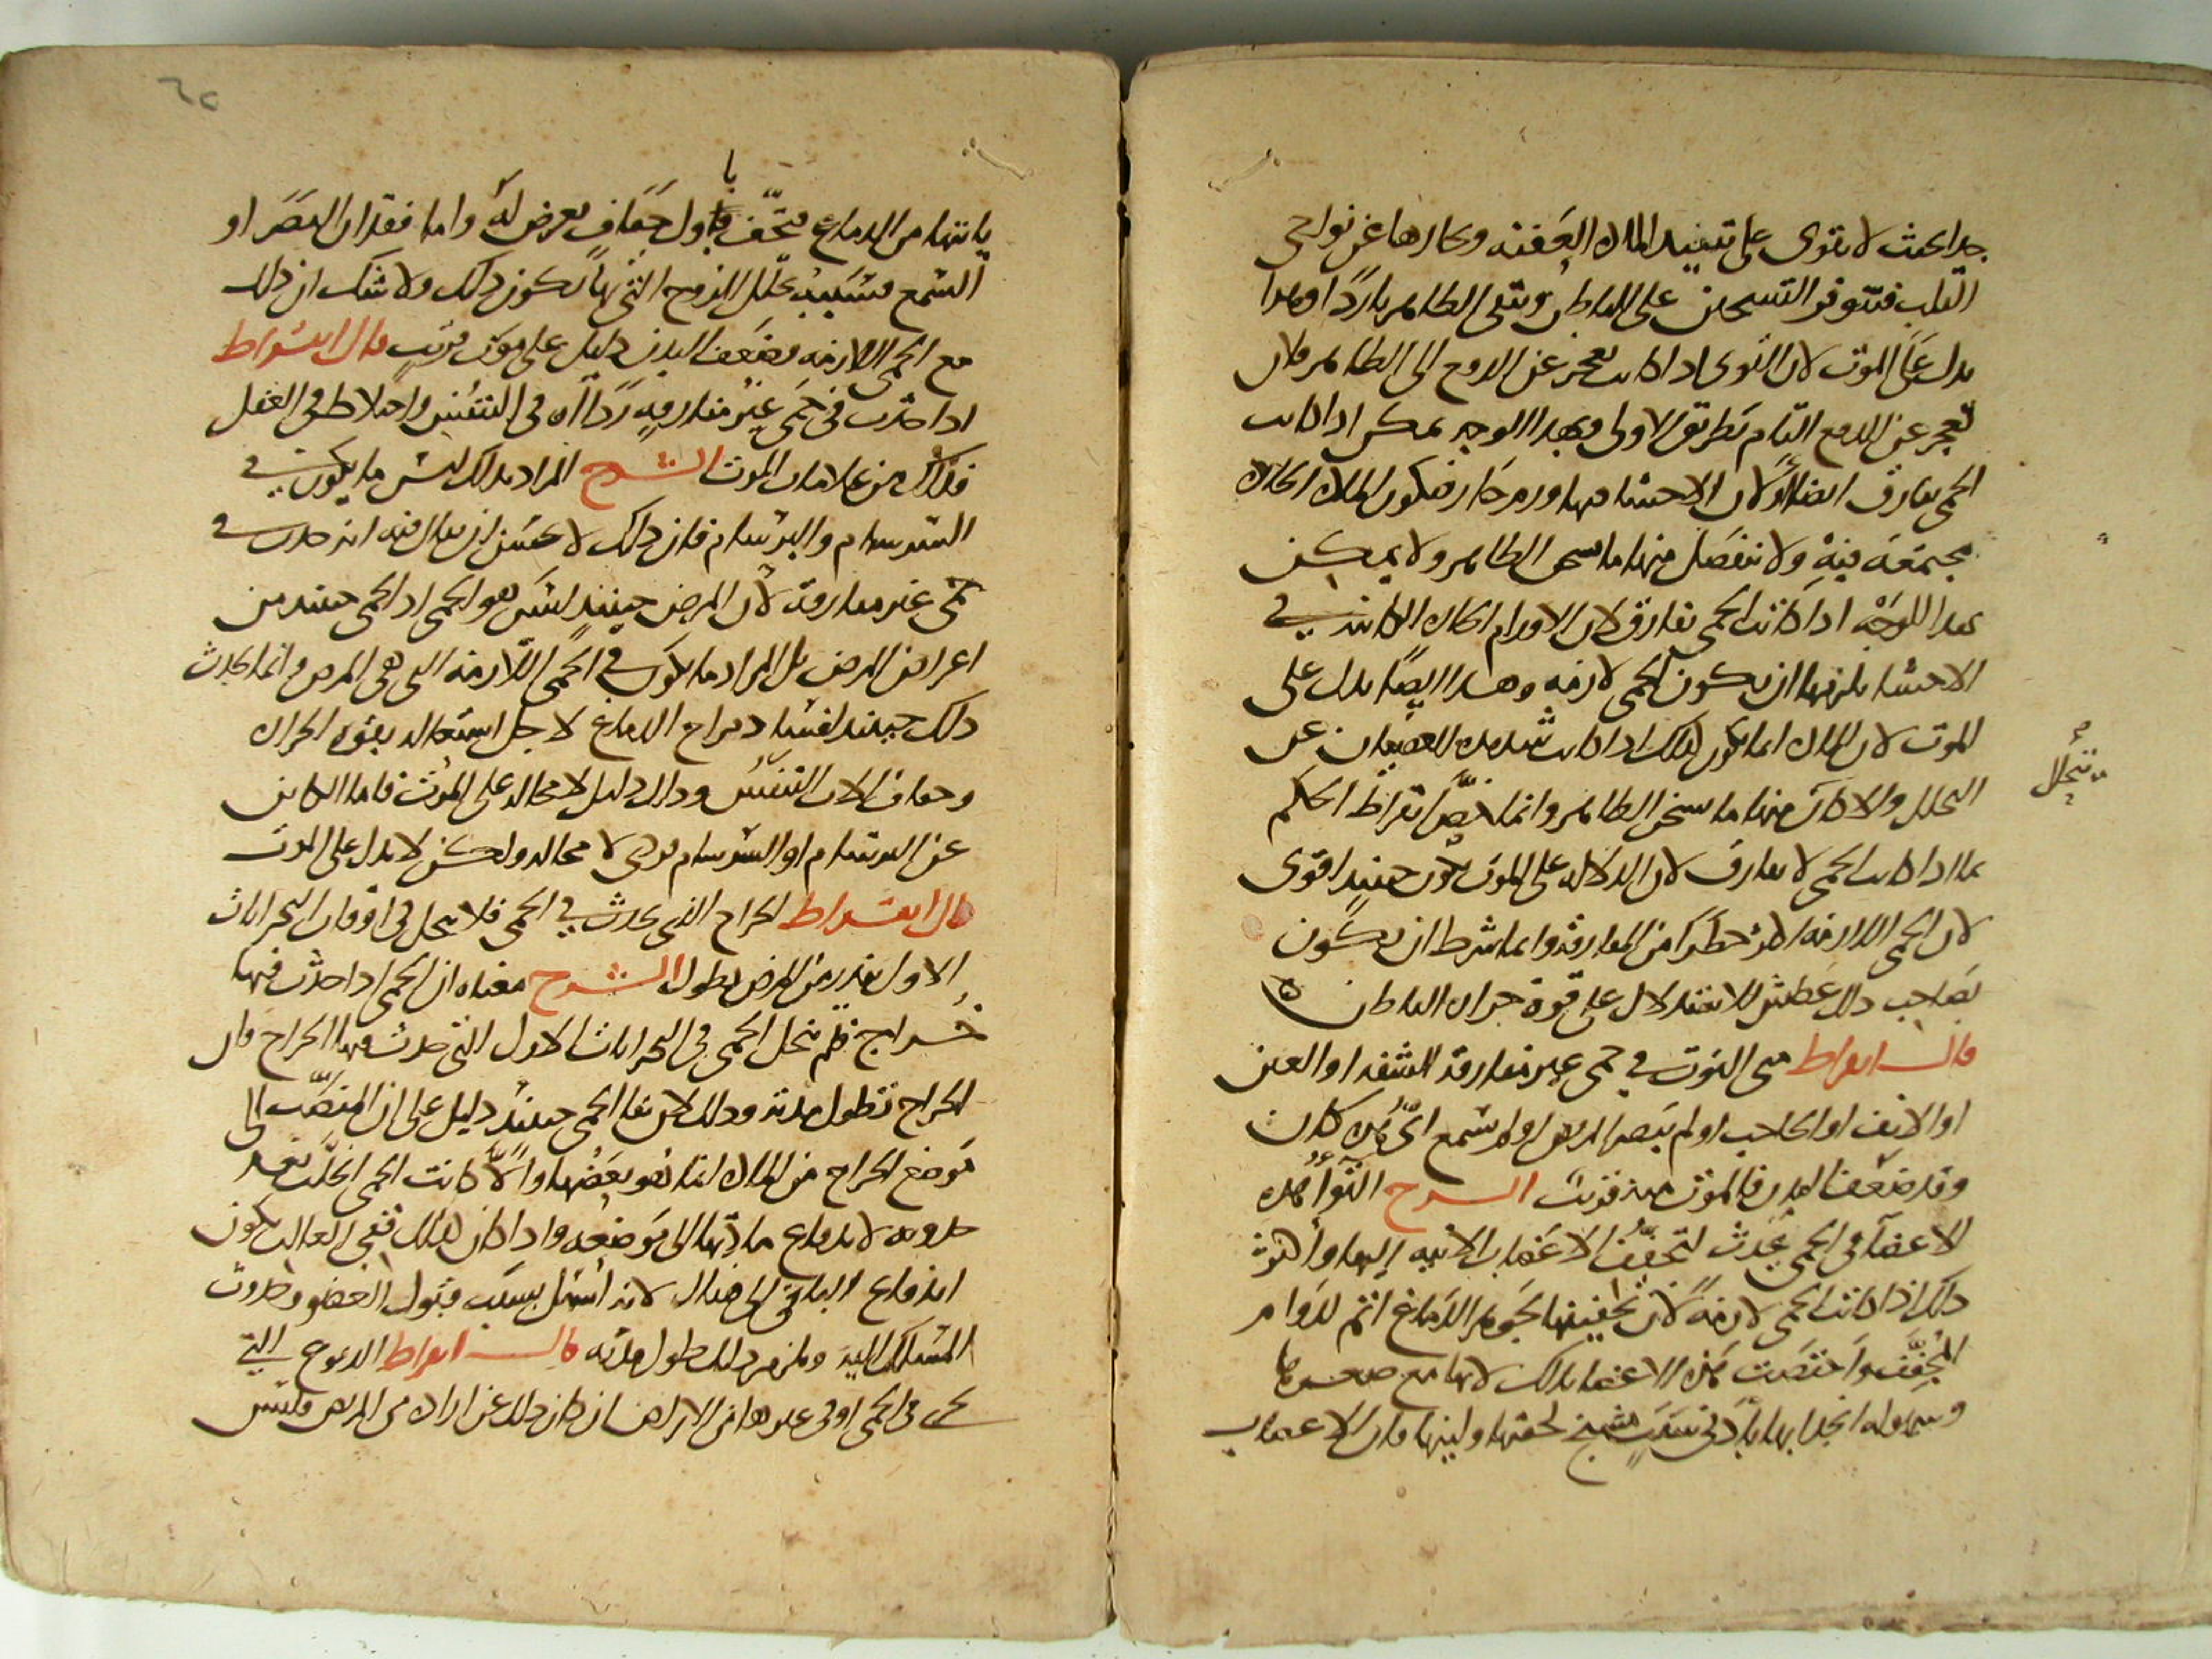 جدا بحيث لا يقوى على تنفيذ المادة العفنة وبخارها عن نواحى
القلب فيتوفر التسخين على الباطن ويبقى الظاهر باردا وهذا
يدل على الموت لان القوى اذا كانت تعجز عن الدفع الى الظاهر فلان
تعجز عن الدفع التام بطريق الاولى وبهذا الوجه يمكن اذا كانت
الحمى تفارق ايضا او لان الاحشا فيها ورم حار فتكون المادة الحارة
مجتمعة فيه ولا تنفصل منها ما يسخن الظاهر ولا يمكن
هذا الوجه اذا كانت الحمى تفارق لان الاورام الحارة الكائنة في
الاحشا يلزمها ان يكون الحمى لازمه وهذا ايضا يدل على
الموت لان المادة انما تكون كذلك اذا كانت شديدة العصيان عن
التحلل والا لكان منها ما يسخن الظاهر وانما خص ابقراط الحكم
تتحلل
بما اذا كانت الحمى لا تفارق لان الدلاله على الموت تكون حينئذ اقوى
لان الحمى اللازمة اكثر خطرا من المفارقة وانما شرط ان يكون
يصاحب ذلك عطش للاستدلال على قوة حرارة الباطن ه
قال ابقراط متى التوت في حمى غير مفارقة الشفة او العين
او الانف او الحاجب او لم يبصر المريض او لم يسمع اى هذه كان
وقد ضعف البدن فالموت منه قريب الشرح التوآ هذه
الاعضآ في الحمى يحدث لتجفف الاعصاب الاتيه اليها واكثر
ذلك اذا كانت الحمى لازمة لان تجفيفها لجوهر الدماغ اتم لدوام
المجفف واختصت هذه الاعضا بذلك لانها مع صغرها
وسهوله انجذابها بادنى سبب مشنج لخفتها ولينها فان الاعصاب
ياتيها من الدماغ فتجف باول جفاف يعرض له واما فقدان البصر او
با
السمع فسببه تحلل الروح التي بها يكون ذلك ولا شك ان ذلك
مع الحمى اللازمه وضعف البدن دليل على موت قريب قال ابقراط
اذا حدث في حمى غير مفارقه رداآة في التنفس واختلاط في العقل
فذلك من علامات الموت الشرح المراد بذلك ليس ما يكون في
السرسام والبرسام فان ذلك لا يحسن ان يقال فيه انه حدث في
حمى غير مفارقة لان المرض حينئذ ليس هو الحمى اذ الحمى حينئذ من
اعراض المرض بل المراد ما يكون في الحمى اللازمة التى هي المرض وانما يحدث
ذلك حينئذ لفساد مزاج الدماغ لاجل اشتعاله بقوة الحرارة
وجفاف الات التنفس وذلك دليل لا محالة على الموت فاما الكاين
عن البرسام او السرسام فردى لا محالة ولكن لا يدل على الموت
قال ابقراط الخراج الذي يحدث في الحمى فلا ينحل في اوقات البحرانات
الاول ينذر من المرض بطول الشرح معناه ان الحمى اذا حدث فيها
خراج فلم ينحل الحمى في البحرانات الاول التي حدث فيها الخراج فان
الخراج تطول مدته وذلك لان بقا الحمى حينئذ دليل على ان المنصب الى
موضع الخراج من المادة انما هو بعضها والا لكانت الحمى انحلت بعد
حدوثه لاندفاع مادتها الى موضعه واذا كان كذلك ففى الغالب يكون
اندفاع الباقي الى هناك لانه اسهل بسبب قبول العضو وحدوث
المسلك اليه ويلزم ذلك طول مدته قال ابقراط الدموع التى
تجرى في الحمى او في غيرها من الامراض ان كان ذلك عن ارادة من المريض فليس